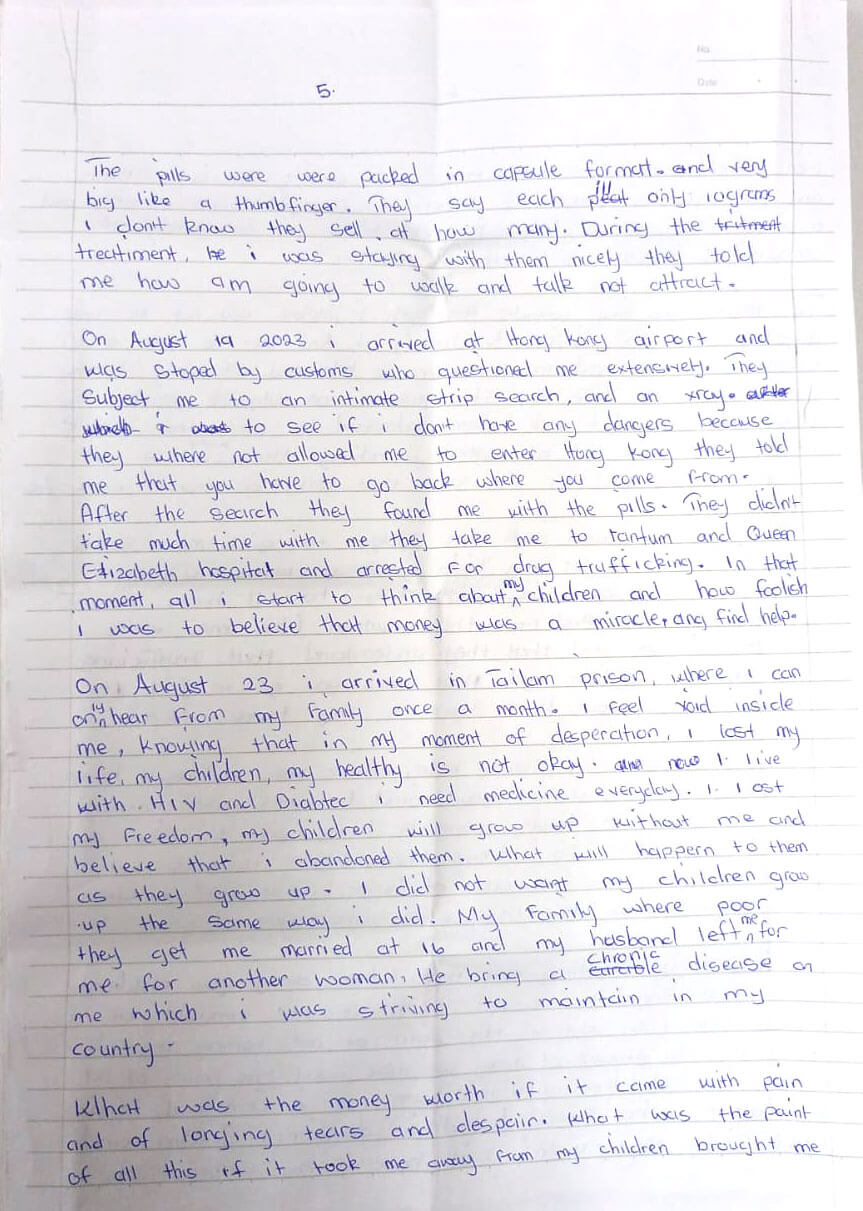 No.
Date
5.
The pills were were packed in capsule format. and very
big like a thumbfinger. They say each pellat only 10grams
i don't know they sell at how many. During the tritment
treatiment, he i was staying with them nicely they told
me how am going to walk and talk not attract.
On August 19 2023 i arrived at Hong Kong airport and
was stoped by customs who questioned me extensively. They
subject me to an intimate strip search, and an xray. after
which i to see if i don't have any dangers because
they where not allowed me to enter Hong Kong they told
me that you have to go back where you come from.
After the search they found me with the pills. They didn't
take much time with me they take me to tantum and Queen
Elizabeth hospital and arrested for drug trufficking. In that
moment, all i start to think about my children and how foolish
I was to believe that money was a miracle, and find help.
On August 23 i arrived in Tailam prison, where i can
only hear from my family once a month. I feel void inside
me, knowing that in my moment of desperation, i lost my
life, my children, my healthy is not okay. now I live
with HIV and Diabtec i need medicine everyday. I lost
my freedom, my children will grow up without me and
believe that i abandoned them. What will happern to them
as they grow up. I did not want my children grow
up the same way i did. My family where poor
they get me married at 16 and my husband left me for
me for another woman. He bring a chronic disease on
me which i was striving to maintain in my
country.
What was the money worth if it came with pain
and of longing tears and despain. What was the point
of all this if it took me away from my children brought me